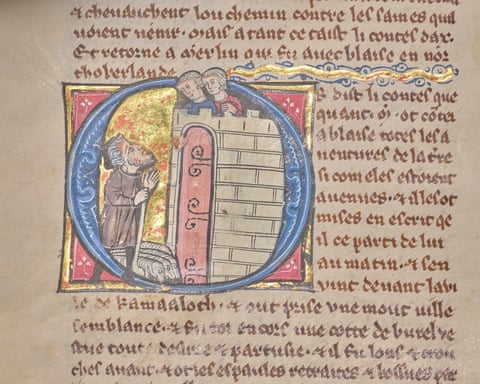 & cheuauchent lou chemin. contre les saines qua
uoient uenir. Mais a tant ce taist li contes dar.
Et retorne a merlin qui fu auec blaise en nor
thoberlande
R dist li contes que
quant. ot cōtei
a blaise totes les a
uentures de la tre
si com eles estoient
auenues. & il les ot
mises en escrit qe
il ce parti de lui
au matin. & sen
uint deuant la ui
le de kamaaloth. & out prise vne mout uille
semblance. & fu tot encors vne cotte de burel ve
stue toute desirre & partusie. & il fu lons & crou
chef auant. & ot les espaules retraites & bossues par